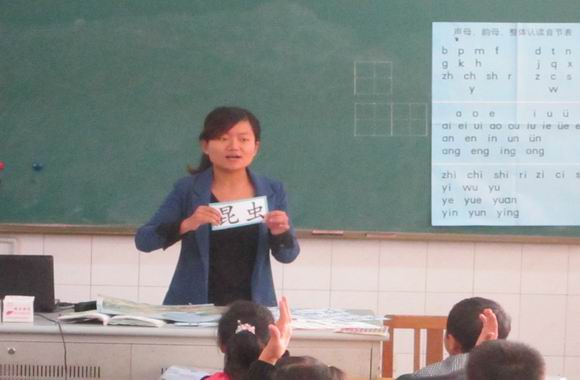 声母、韵母、整体认读音节表
b p m f d t n
g k h j q x
zh ch sh r z c s
y w
a o e i u ü
ai ei ui ao ou iu ie üe e
an en in un ün
ang eng ing ong
zhi chi shi ri zi ci s
yi wu yu
ye yue yuan
yin yun ying
昆虫